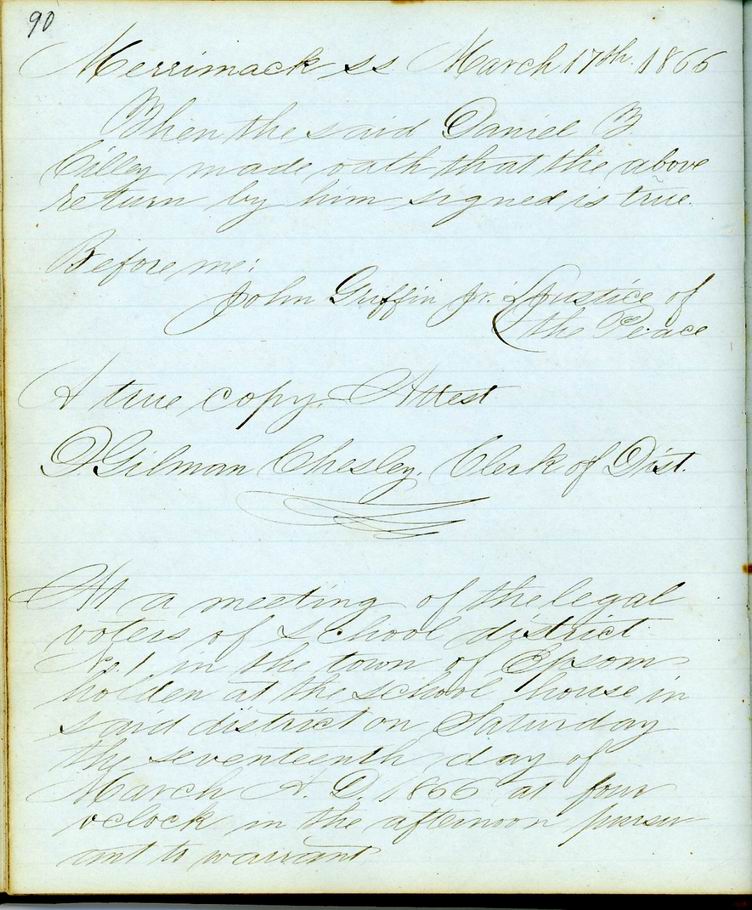 90
Merrimack ss March 17th. 1866
Then the said Daniel B
Cilley made oath that the above
return by him signed is true.
Before me:
John Griffin Jr. Justice of
the Peace
A true copy. Attest
D. Gilman Chesley. Clerk of Dist.
At a meeting of the legal
voters of School district
No. 1 in the town of Epsom
holden at the school house in
said district on Saturday
the seventeenth day of
March A. D. 1866 at four
oclock in the afternoon pursu
ant to warrant